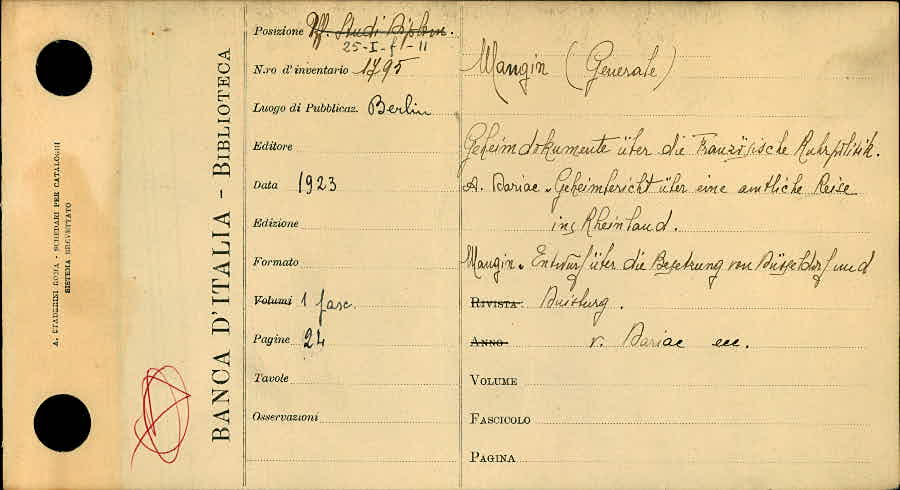 A. STADERINI ROMA - SCHEDARI PER CATALOGHI
SISTEMA BREVETTATO
BANCA D'ITALIA - BIBLIOTECA
Posizione Uff. Studi Diplom.
25-I-f-11
N.ro d'inventario 1795
Luogo di Pubblicaz. Berlin
Editore
Data 1923
Edizione
Formato
Volumi 1 fasc.
Pagine 24
Tavole
Osservazioni
Mangin (Generale)
Geheimdokumente über die Französische Ruhrpolitik.
A. Dariac - Geheimbericht über eine amtliche Reise
ins Rheinland.
Mangin - Entwurf über die Besetzung von Düsseldorf und
RIVISTA Duisburg.
ANNO v. Dariac ecc.
VOLUME
FASCICOLO
PAGINA